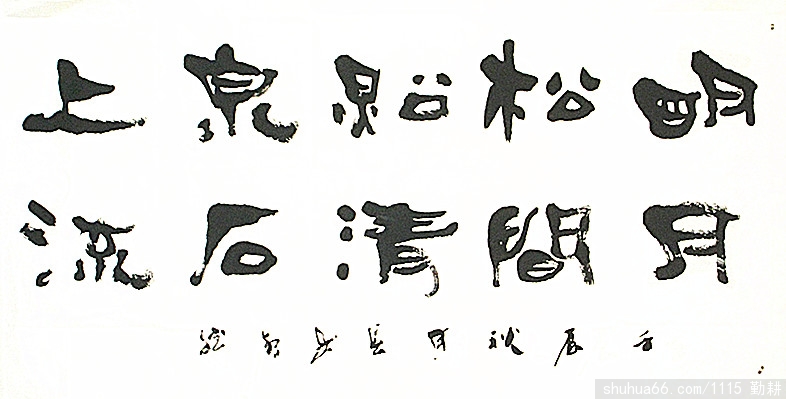 明月
松間
照清
泉石
上流
辰秋月
shuhua66.com/1115 勤耕